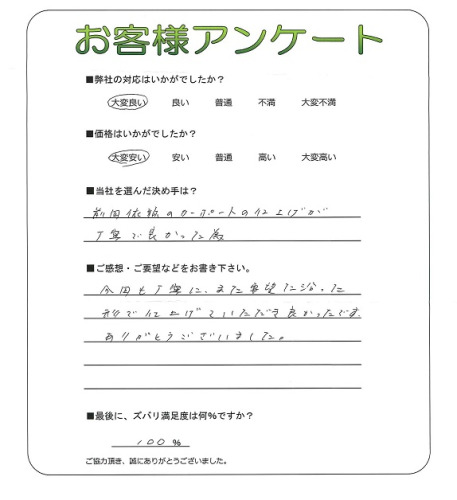 お客様アンケート
■弊社の対応はいかがでしたか？
大変良い 良い 普通 不満 大変不満
■価格はいかがでしたか？
大変安い 安い 普通 高い 大変高い
■当社を選んだ決め手は？
前回依頼のカーポートの仕上げが
丁寧で良かった為
■ご感想・ご要望などをお書き下さい。
今回も丁寧に、また要望に沿った
形で仕上げていただき良かったです。
ありがとうございました。
■最後に、ズバリ満足度は何%ですか？
100%
ご協力頂き、誠にありがとうございました。